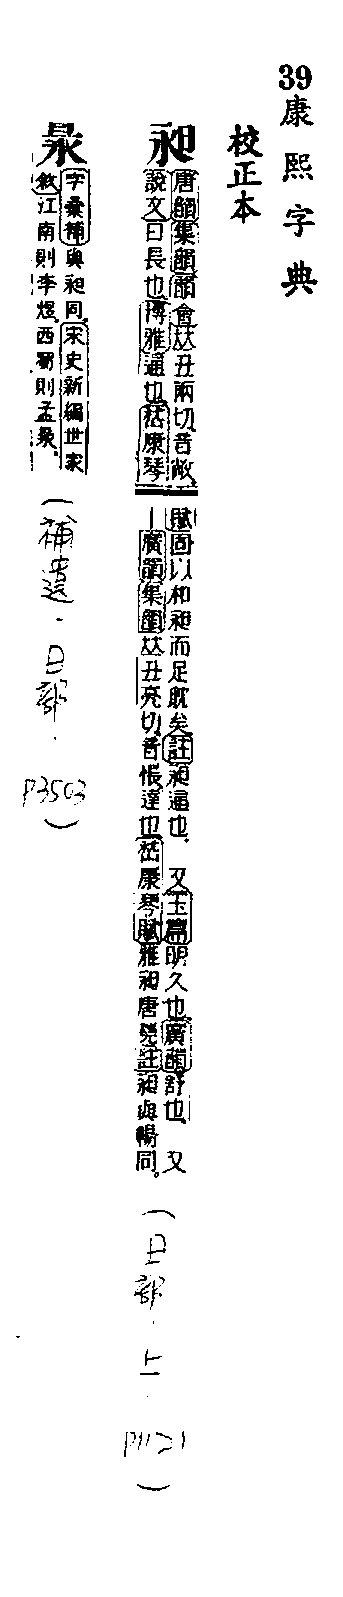 39 康熙字典
校正本
昶
唐韻集韻韻會𠀤丑兩切音敞
說文日長也博雅通也嵇康琴
賦固以和昶而足耽矣註昶通也、又玉篇明久也廣韻舒也、又
廣韻集韻𠀤丑亮切音悵達也嵇康琴賦雅昶唐堯註昶與暢同。
(日部·上·P1121)
㫤
字彙補與昶同宋史新編世家
敘江南則李煜西蜀則孟㫤
(補遺·日部·P3503)